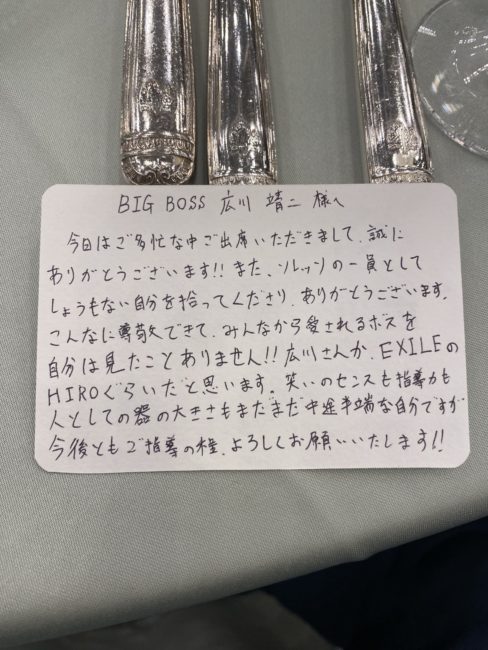 BIG BOSS 広川 靖二 様へ
今日はご多忙な中ご出席いただきまして、誠に
ありがとうございます!! また、ソレッソの一員として
しょうもない自分を拾ってくださり、ありがとうございます。
こんなに尊敬できて、みんなから愛されるボスを
自分は見たことありません!! 広川さんか、EXILEの
HIROぐらいだと思います。笑いのセンスも指導力も
人としての器の大きさもまだまだ中途半端な自分ですが
今後ともご指導の程、よろしくお願いいたします!!